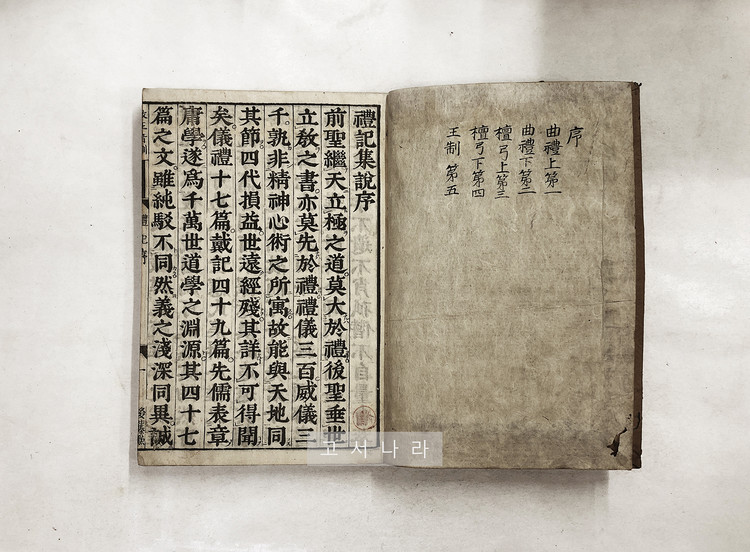 序
曲禮上第一
曲禮下第二
檀弓上第三
檀弓下第四
王制 第五
禮記集說序
前聖繼天立極之道莫大於禮後聖垂世
立敎之書亦莫先於禮禮儀三百威儀三
千孰非精神心術之所寓故能與天地同
其節四代損益世遠經殘其詳不可得聞
矣儀禮十七篇戴記四十九篇先儒表章
庸學遂爲千萬世道學之淵源其四十七
篇之文雖純駁不同然義之淺深同異誠
고서나라